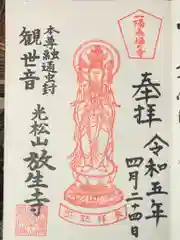 一陽来福の寺
奉拝
令和五年
四月二十四日
本尊融通虫封
観世音
光松山放生寺